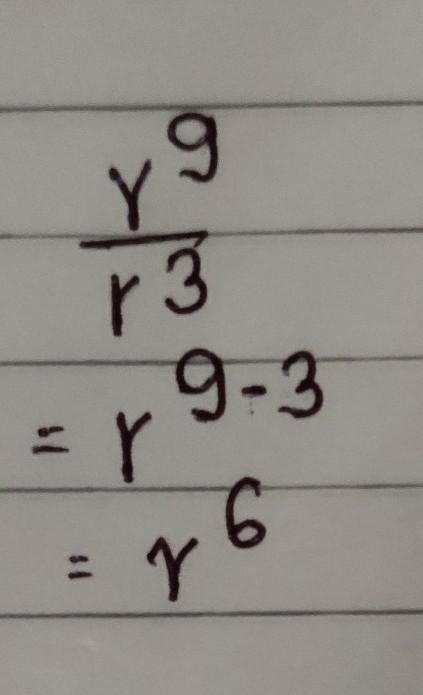 r^9
r^3
= r^9-3
= r^6